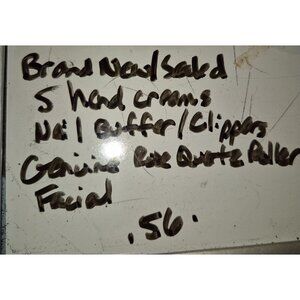 Brand New/Sealed
5 hand creams
Nail Buffer/Clippers
Genuine Rose Quartz Roller
Facial
.56.